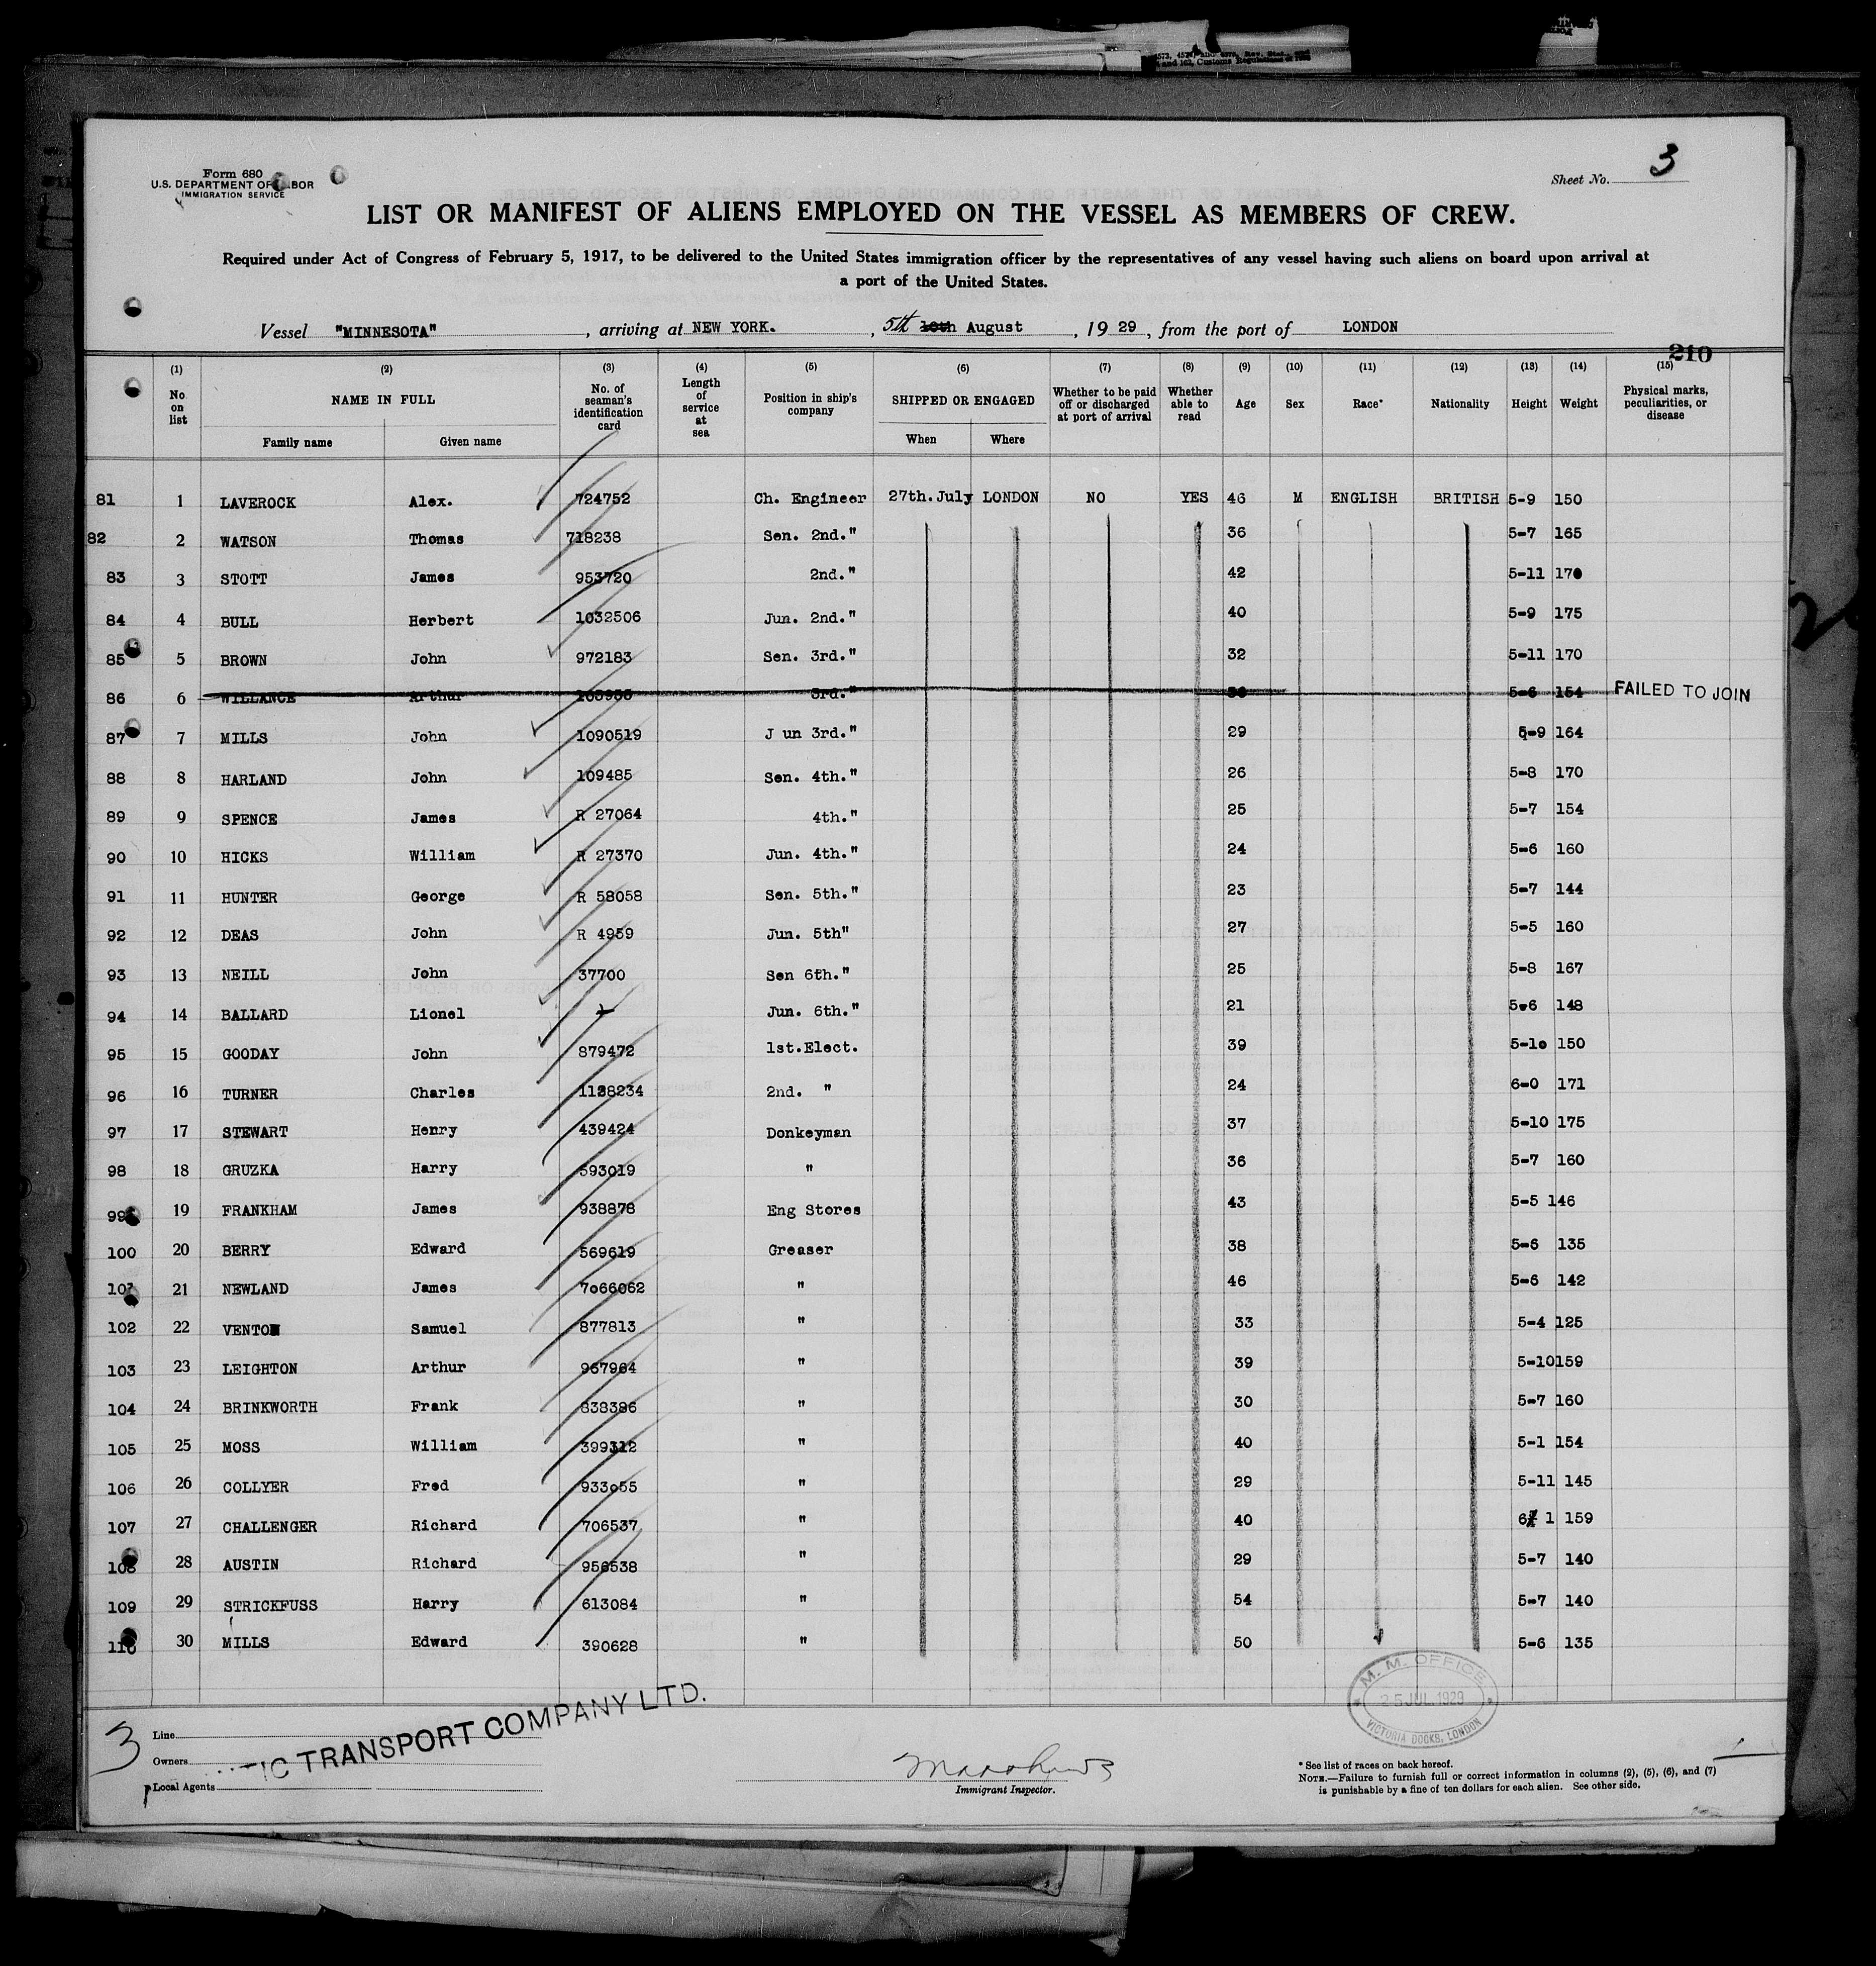 573, 4574, and 4575, Rev. Stat.,
and 162, Customs Regulations
Form 680
U.S. DEPARTMENT OF LABOR
IMMIGRATION SERVICE
Sheet No. 3
LIST OR MANIFEST OF ALIENS EMPLOYED ON THE VESSEL AS MEMBERS OF CREW.
Required under Act of Congress of February 5, 1917, to be delivered to the United States immigration officer by the representatives of any vessel having such aliens on board upon arrival at
a port of the United States.
Vessel "MINNESOTA", arriving at NEW YORK., 5th 10th August, 19 29, from the port of LONDON
210
(1) (2) (3) (4) (5) (6) (7) (8) (9) (10) (11) (12) (13) (14) (15)
No on list NAME IN FULL Family name Given name No. of seaman's identification card Length of service at sea Position in ship's company SHIPPED OR ENGAGED When Where Whether to be paid off or discharged at port of arrival Whether able to read Age Sex Race* Nationality Height Weight Physical marks, peculiarities, or disease
81 1 LAVEROCK Alex. 724752 Ch. Engineer 27th.July LONDON NO YES 46 M ENGLISH BRITISH 5-9 150
82 2 WATSON Thomas 718238 Sen. 2nd." 36 5-7 165
83 3 STOTT James 953720 2nd." 42 5-11 170
84 4 BULL Herbert 1032506 Jun. 2nd." 40 5-9 175
85 5 BROWN John 972183 Sen. 3rd." 32 5-11 170
86 6 WILLANCE Arthur 3rd." 5-6 154 FAILED TO JOIN
87 7 MILLS John 1090519 J un 3rd." 29 5-9 164
88 8 HARLAND John 109485 Sen. 4th." 26 5-8 170
89 9 SPENCE James R 27064 4th." 25 5-7 154
90 10 HICKS William R 27370 Jun. 4th." 24 5-6 160
91 11 HUNTER George R 58058 Sen. 5th." 23 5-7 144
92 12 DEAS John R 4959 Jun. 5th" 27 5-5 160
93 13 NEILL John 37700 Sen 6th." 25 5-8 167
94 14 BALLARD Lionel Jun. 6th." 21 5-6 148
95 15 GOODAY John 879472 1st.Elect. 39 5-1o 150
96 16 TURNER Charles 1128234 2nd. " 24 6-0 171
97 17 STEWART Henry 439424 Donkeyman 37 5-10 175
98 18 GRUZKA Harry 593019 " 36 5-7 160
99 19 FRANKHAM James 938878 Eng Stores 43 5-5 146
100 20 BERRY Edward 569619 Greaser 38 5-6 135
101 21 NEWLAND James 7o66062 " 46 5-6 142
102 22 VENTON Samuel 877813 " 33 5-4 125
103 23 LEIGHTON Arthur 967964 " 39 5-10 159
104 24 BRINKWORTH Frank 838386 " 30 5-7 160
105 25 MOSS William 399312 " 40 5-1 154
106 26 COLLYER Fred 933o55 " 29 5-11 145
107 27 CHALLENGER Richard 706537 " 40 6 1 159
108 28 AUSTIN Richard 956538 " 29 5-7 140
109 29 STRICKFUSS Harry 613084 " 54 5-7 140
110 30 MILLS Edward 390628 " 50 5-6 135
M. M. OFFICE
25 JUL 1929
VICTORIA DOCKS, LONDON
3
Line
Owners
TIC TRANSPORT COMPANY LTD.
Local Agents
Immigrant Inspector.
* See list of races on back hereof.
NOTE.—Failure to furnish full or correct information in columns (2), (5), (6), and (7)
is punishable by a fine of ten dollars for each alien. See other side.